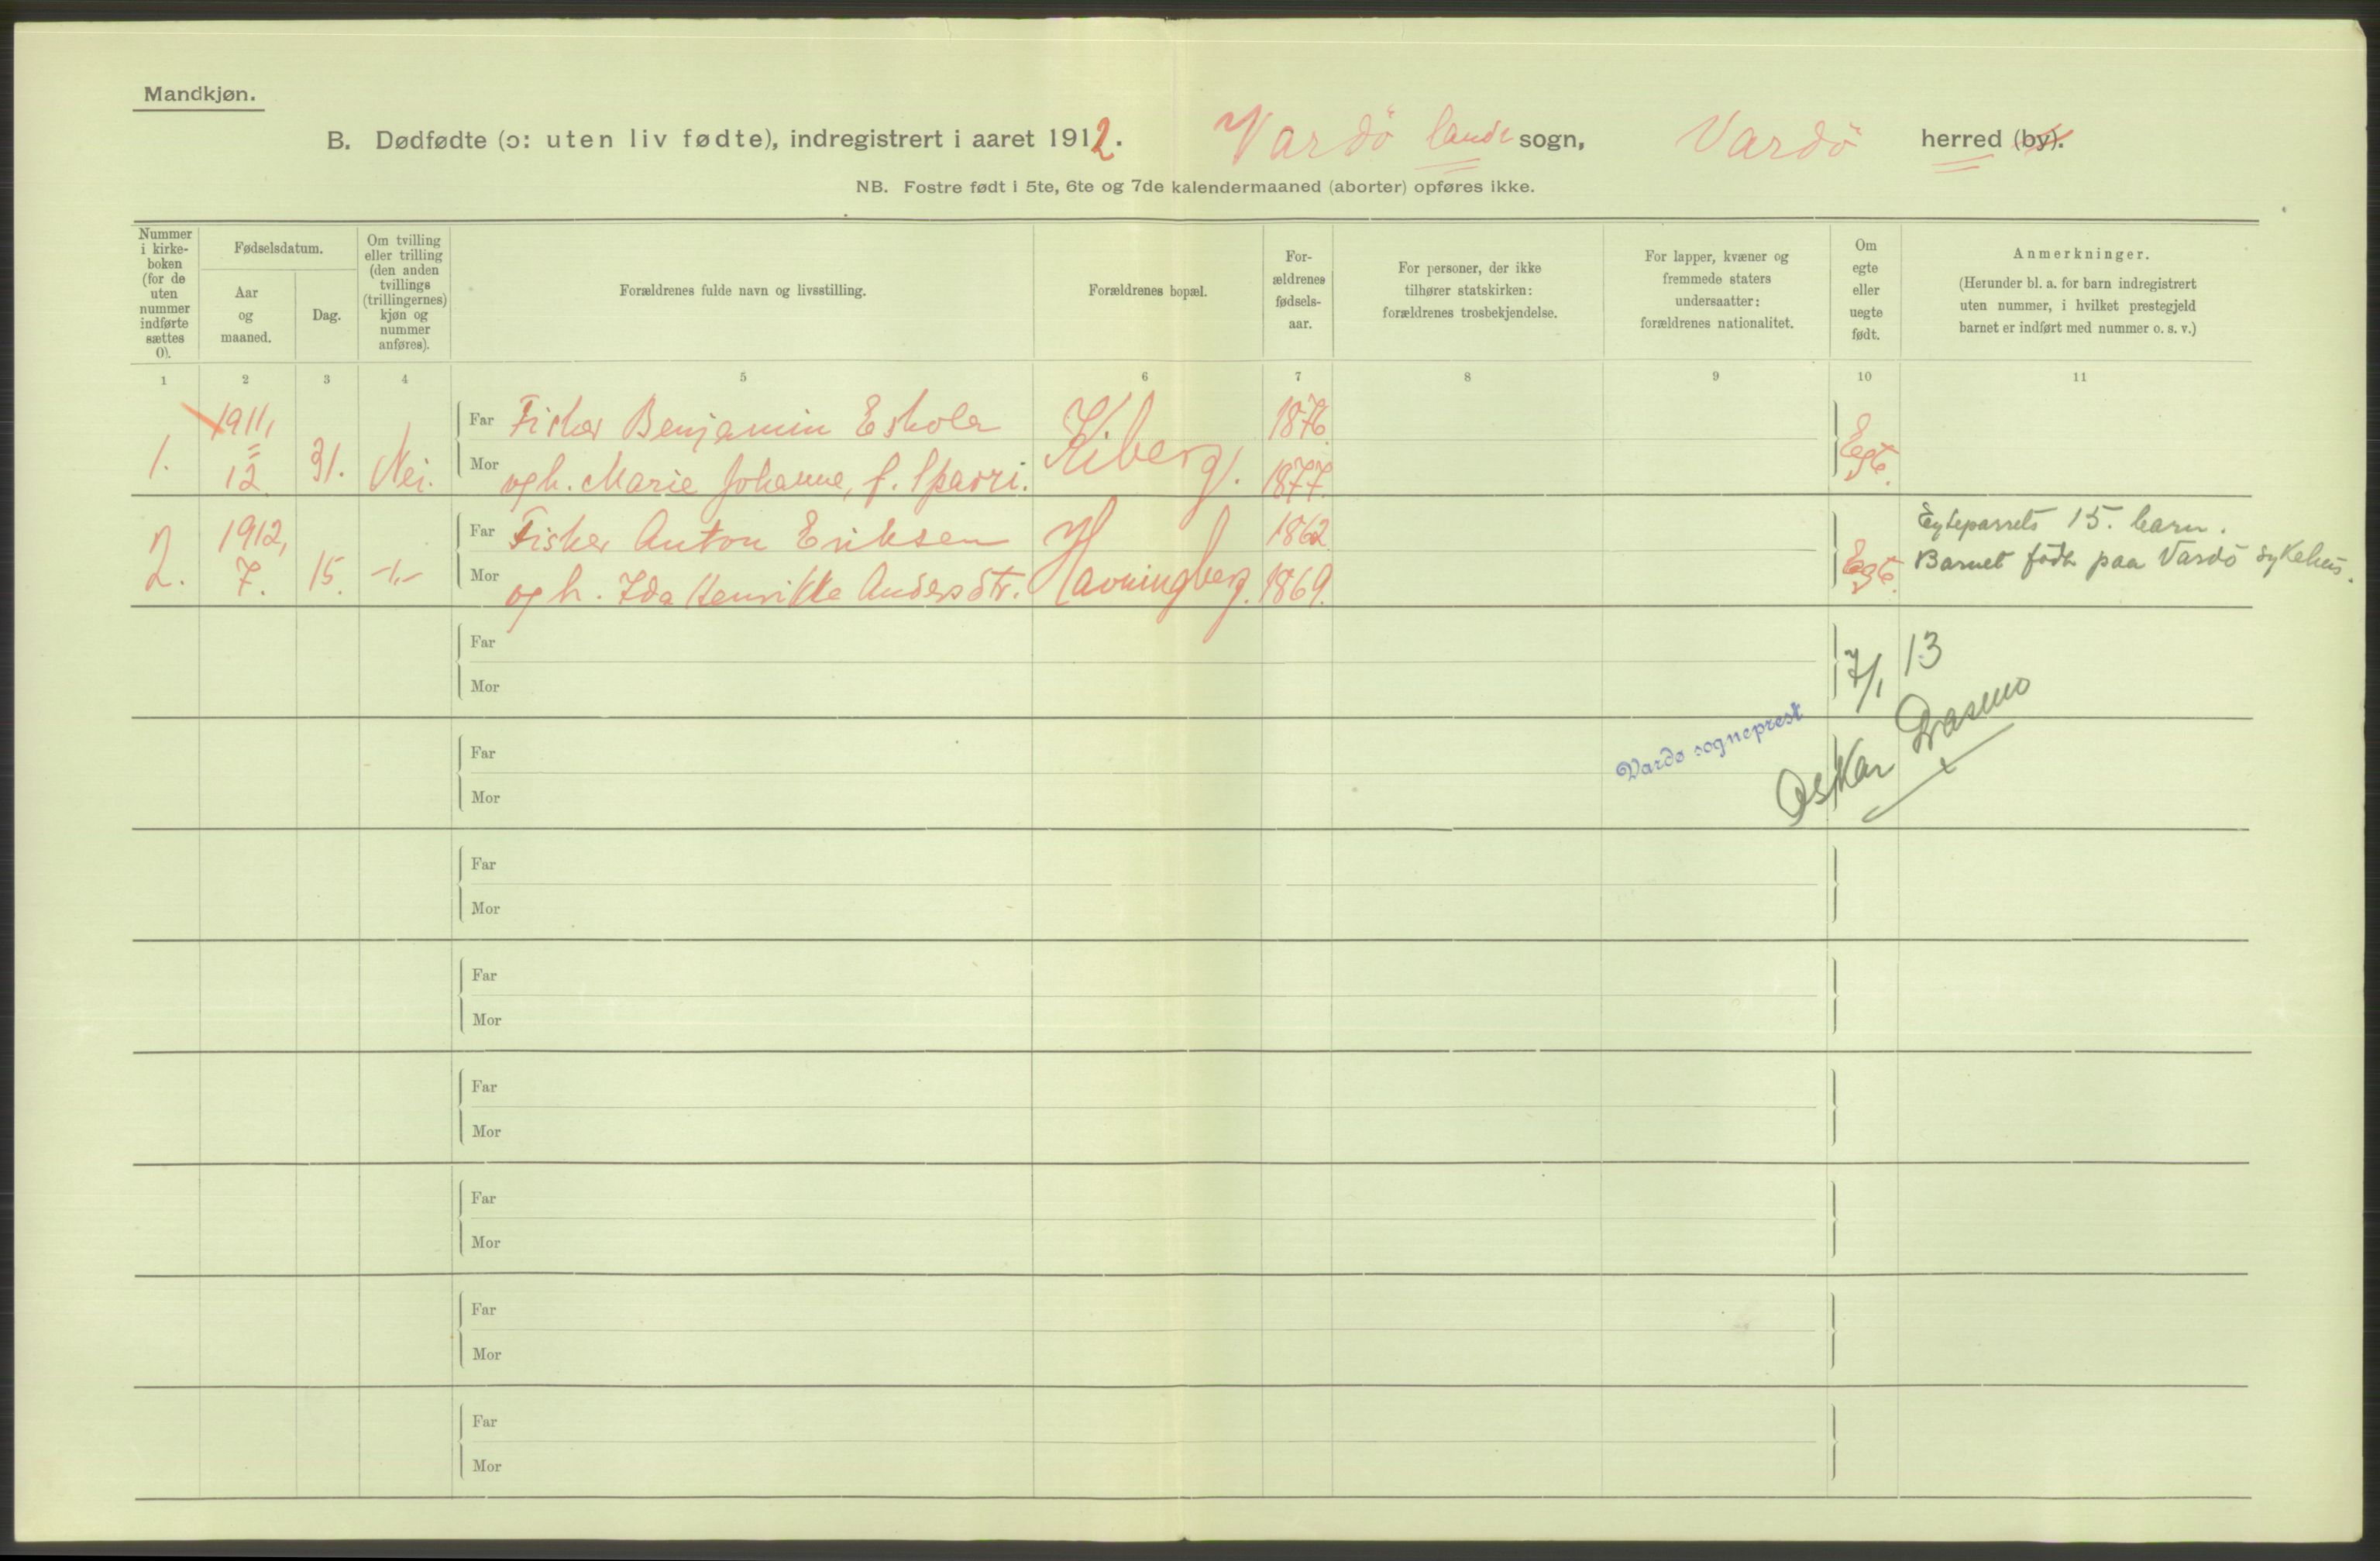 Mandkjøn.
B. Dødfødte (ɔ: uten liv fødte), indregistrert i aaret 1912. Vardö lands sogn, Vardö herred (by).
NB. Fostre født i 5te, 6te og 7de kalendermaaned (aborter) opføres ikke.
Nummer
i kirke-
boken
(for de
uten
nummer
indførte
sættes
0).
Fødselsdatum.
Aar
og
maaned.
Dag.
Om tvilling
eller trilling
(den anden
tvillings
(trillingernes)
kjøn og
nummer
anføres).
Forældrenes fulde navn og livsstilling.
Forældrenes bopæl.
For-
ældrenes
fødsels-
aar.
For personer, der ikke
tilhører statskirken:
forældrenes trosbekjendelse.
For lapper, kvæner og
fremmede staters
undersaatter:
forældrenes nationalitet.
Om
egte
eller
uegte
født.
Anmerkninger.
(Herunder bl. a. for barn indregistrert
uten nummer, i hvilket prestegjeld
barnet er indført med nummer o. s. v.)
1 2 3 4 5 6 7 8 9 10 11
1. 1911, 12 31. Nei. Far Fisker Benjamin Eskola Kiberg. 1876. Egte.
Mor og h. Marie Johanne, f. 1877.
2. 1912, 7. 15. -"- Far Fisker Anton Eriksen Havningberg. 1862 Egte. Egteparrets 15. barn.
Mor og h. Ida Henrikke Andersdtr. 1869. Barnet født paa Vardö sykehus.
Far
Mor
7/1 13
Far
Mor
Vardø sogneprest
Oskar
Far
Mor
Far
Mor
Far
Mor
Far
Mor
Far
Mor
Far
Mor